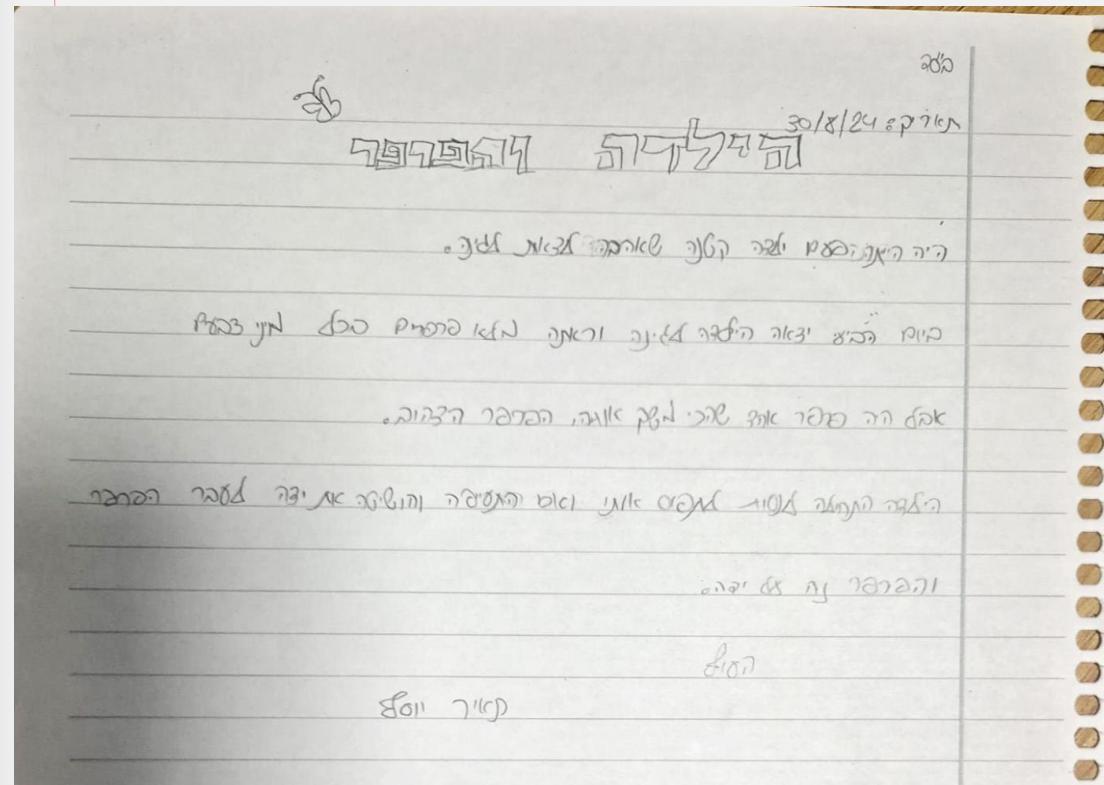 בעב
תאריך: 30/8/24
הילדה והפרפר
היה היתה פעם ילדה קטנה שאהבה לצאת לגינה.
ביום רביעי יצאה הילדה לגינה וראתה מלא פרפרים בכל מיני צבעים
אבל היה פרפר אחד שהכי משך אותה, הפרפר הצהוב.
הילדה התחילה לנסות לתפוס אותו ואט התעייפה והושיטה את ידה לעבר הפרפר
והפרפר נח על ידה.
הסוף
תאיר יוסף